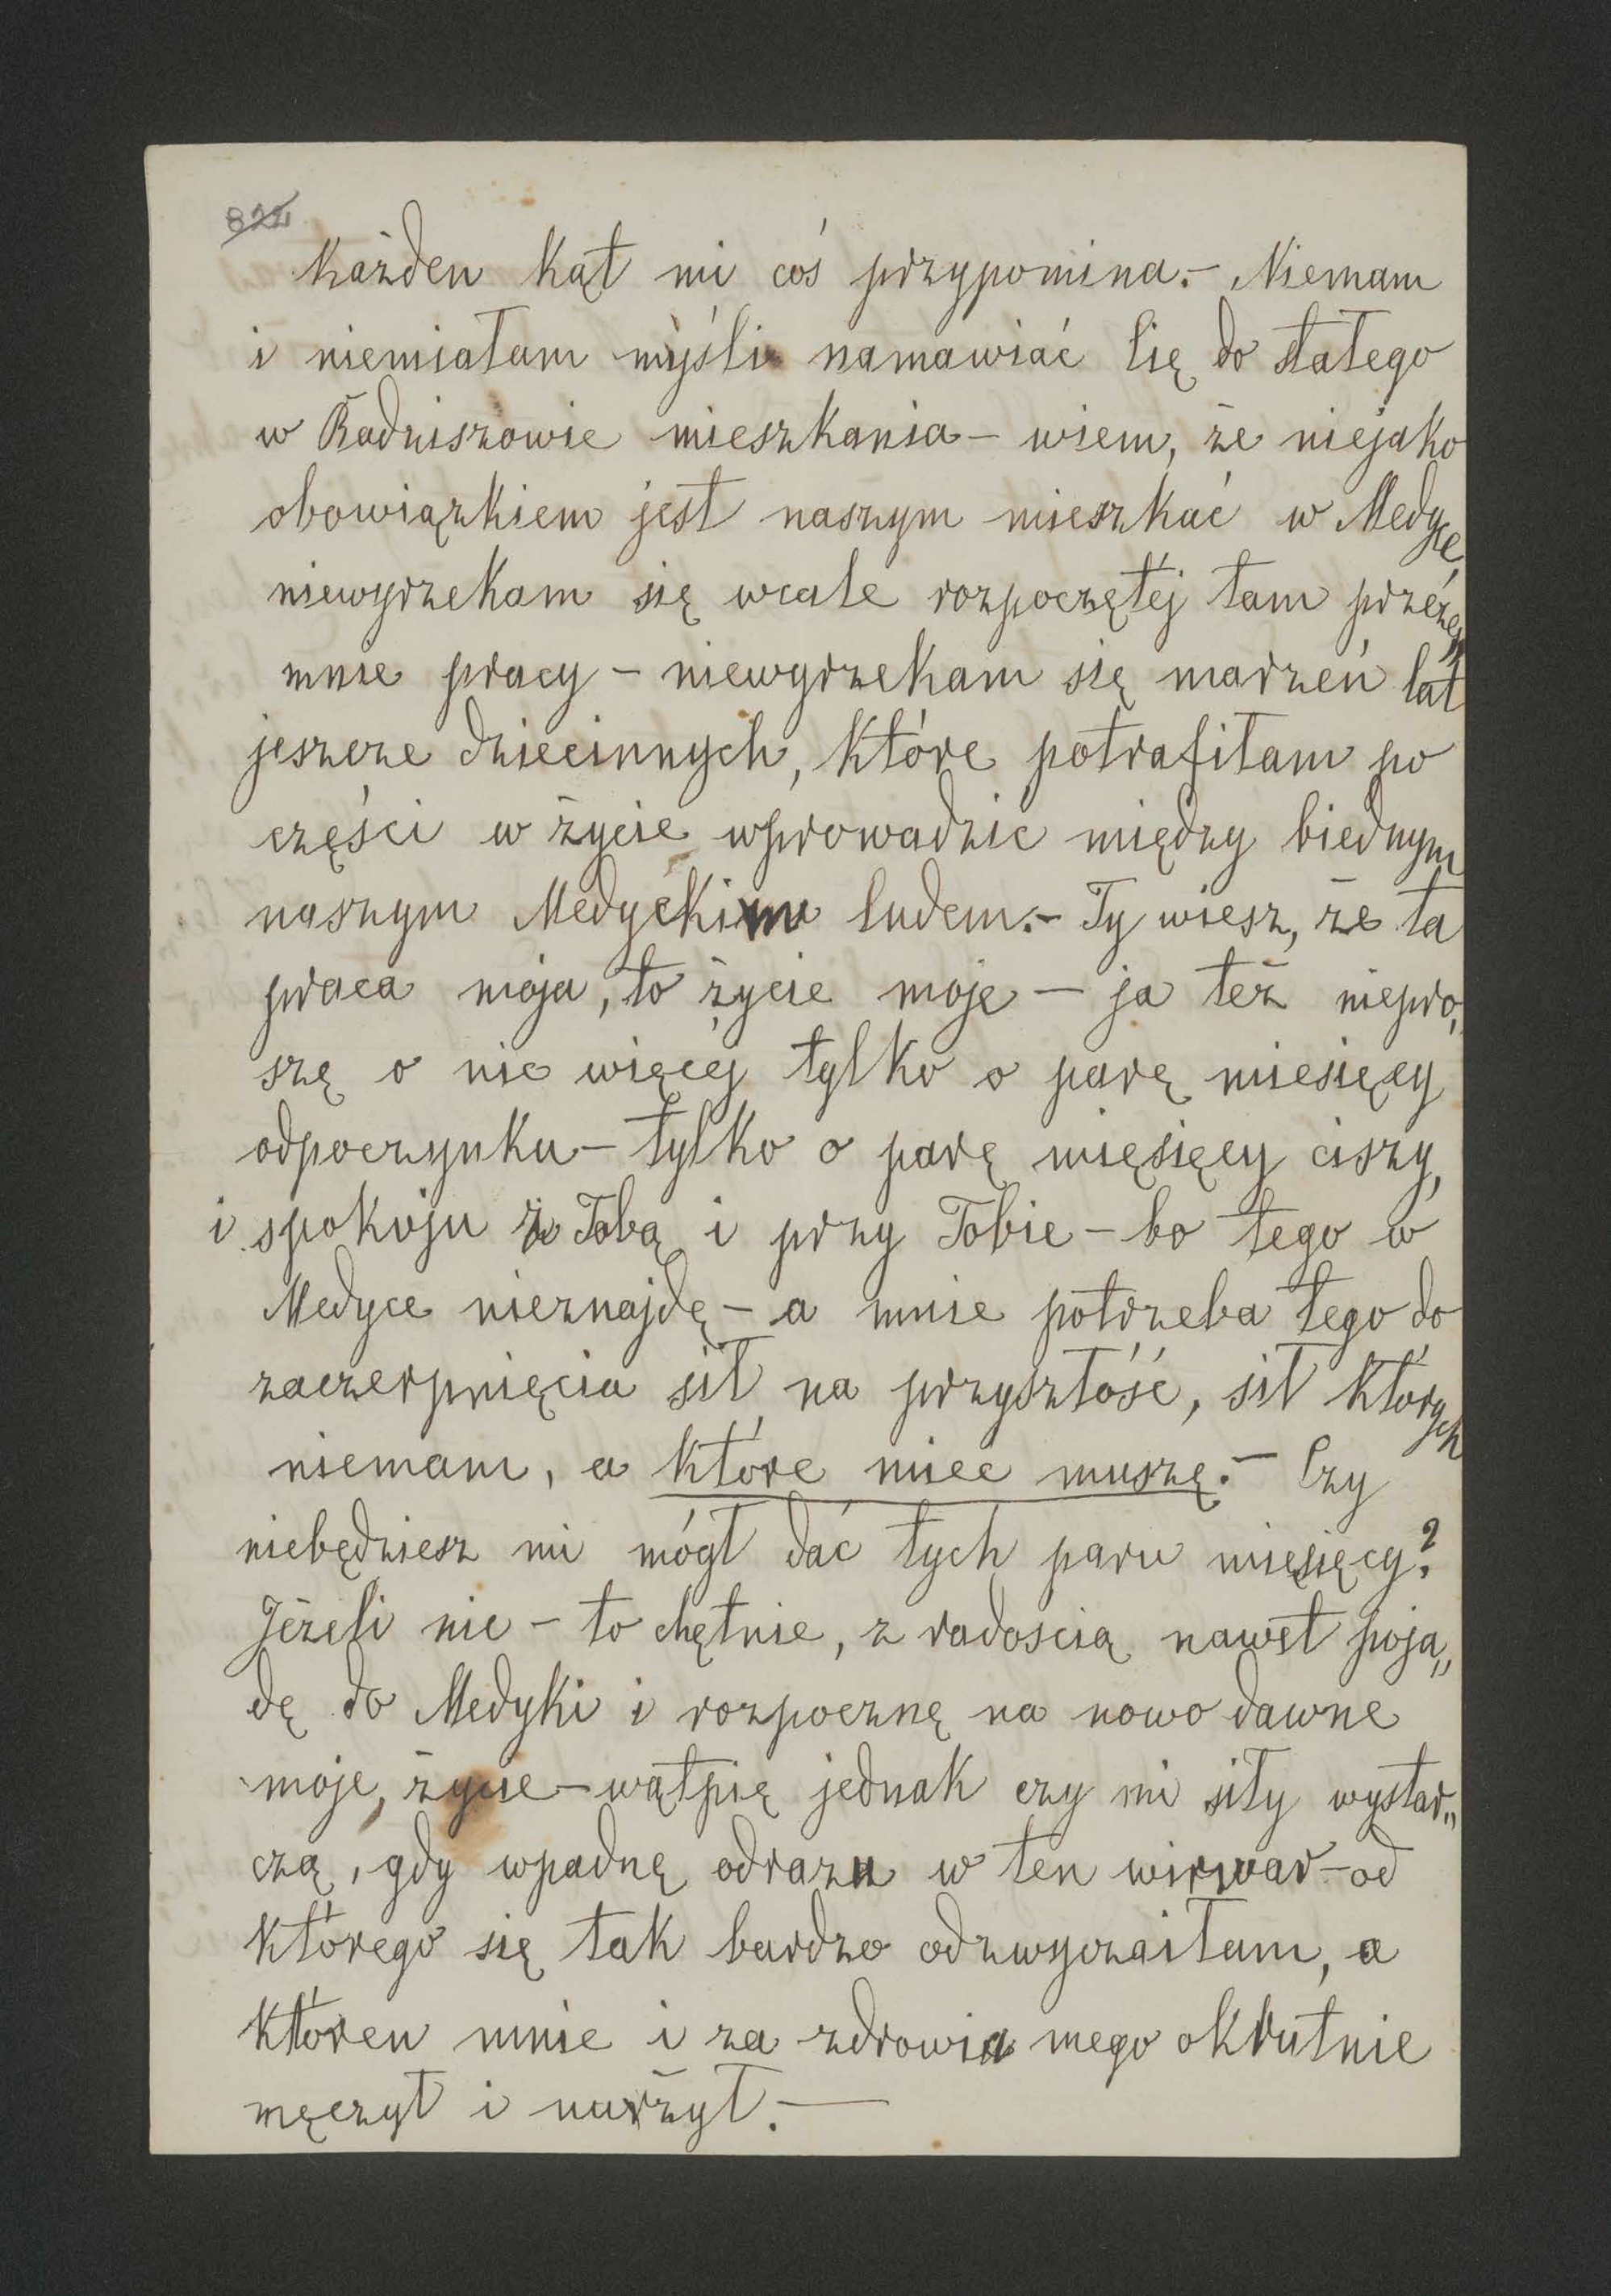 822
Każden kąt mi coś przypomina.– Niemam
i niemiałam myśli namawiać Cię do stałego
w Radziszowie mieszkania – wiem, że niejako
obowiązkiem jest naszym mieszkać w Medyce
niewyrzekam się wcale rozpoczętéj tam przéze
mnie pracy – niewyrzekam się marzeń lat
jeszcze dziecinnych, które potrafiłam po
części w życie wprowadzić między biednym
naszym Medyckim ludem.– Ty wiesz, że ta
praca moja, to życie moje – ja też niepro„
szę o nic więcej tylko o parę miesięcy
odpoczynku – tylko o parę mięsięcy ciszy,
i spokoju z Tobą i przy Tobie – bo tego w
Medyce nieznajdę – a mnie potrzeba tego do
zaczerpnięcia sił na przyszłość, sił których
niemam, a które miec muszę.– Czy
niebędziesz mi mógł dać tych paru mięsięcy?
Jeżeli nie – to chętnie, z radoscią nawet poja„
dę do Medyki i rozpocznę na nowo dawne
moje życie – wątpię jednak czy mi siły wystar„
czą, gdy wpadnę odrazu w ten wirwar – od
którego się tak bardzo odzwyczaiłam, a
któren mnie i za zdrowia mego okrutnie
męczył i nużył.–